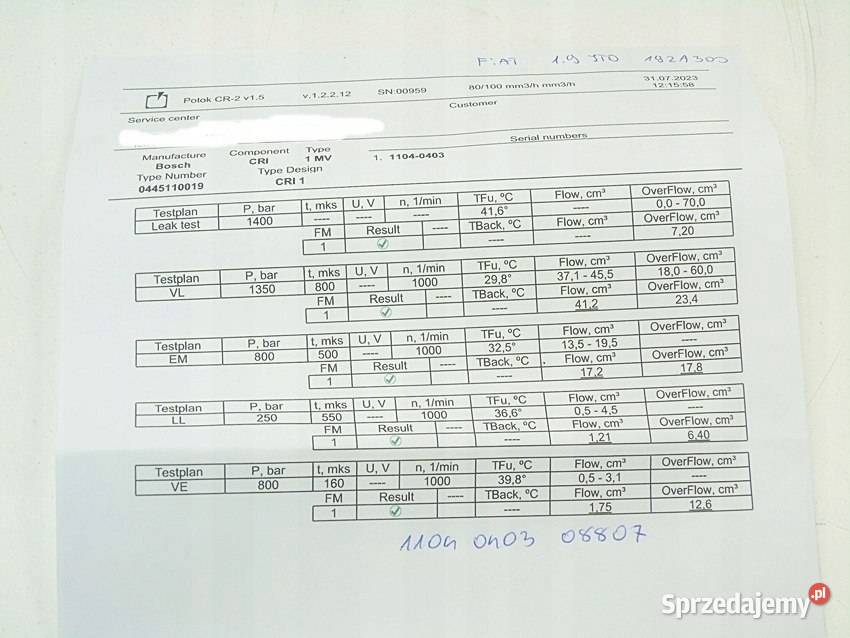 FIAT 1.9 JTD 192A300
Potok CR-2 v1.5 v.1.2.2.12 SN:00959 80/100 mm3/h mm3/h 31.07.2023 12:15:58
Service center Customer
Manufacture Component Type Serial numbers
Bosch CRI 1 MV 1. 1104-0403
Type Number Type Design
0445110019 CRI 1
Testplan P, bar t, mks U, V n, 1/min TFu, ºC Flow, cm³ OverFlow, cm³
Leak test 1400 ---- ---- ---- 41,6° ---- 0,0 - 70,0
FM Result ---- TBack, ºC Flow, cm³ OverFlow, cm³
1 ---- ---- 7,20
Testplan P, bar t, mks U, V n, 1/min TFu, ºC Flow, cm³ OverFlow, cm³
VL 1350 800 ---- 1000 29,8° 37,1 - 45,5 18,0 - 60,0
FM Result ---- TBack, ºC Flow, cm³ OverFlow, cm³
1 ---- 41,2 23,4
Testplan P, bar t, mks U, V n, 1/min TFu, ºC Flow, cm³ OverFlow, cm³
EM 800 500 ---- 1000 32,5° 13,5 - 19,5 ----
FM Result ---- TBack, ºC Flow, cm³ OverFlow, cm³
1 ---- 17,2 17,8
Testplan P, bar t, mks U, V n, 1/min TFu, ºC Flow, cm³ OverFlow, cm³
LL 250 550 ---- 1000 36,6° 0,5 - 4,5 ----
FM Result ---- TBack, ºC Flow, cm³ OverFlow, cm³
1 ---- 1,21 6,40
Testplan P, bar t, mks U, V n, 1/min TFu, ºC Flow, cm³ OverFlow, cm³
VE 800 160 ---- 1000 39,8° 0,5 - 3,1 ----
FM Result ---- TBack, ºC Flow, cm³ OverFlow, cm³
1 ---- 1,75 12,6
1104 0403 08807
Sprzedajemy.pl